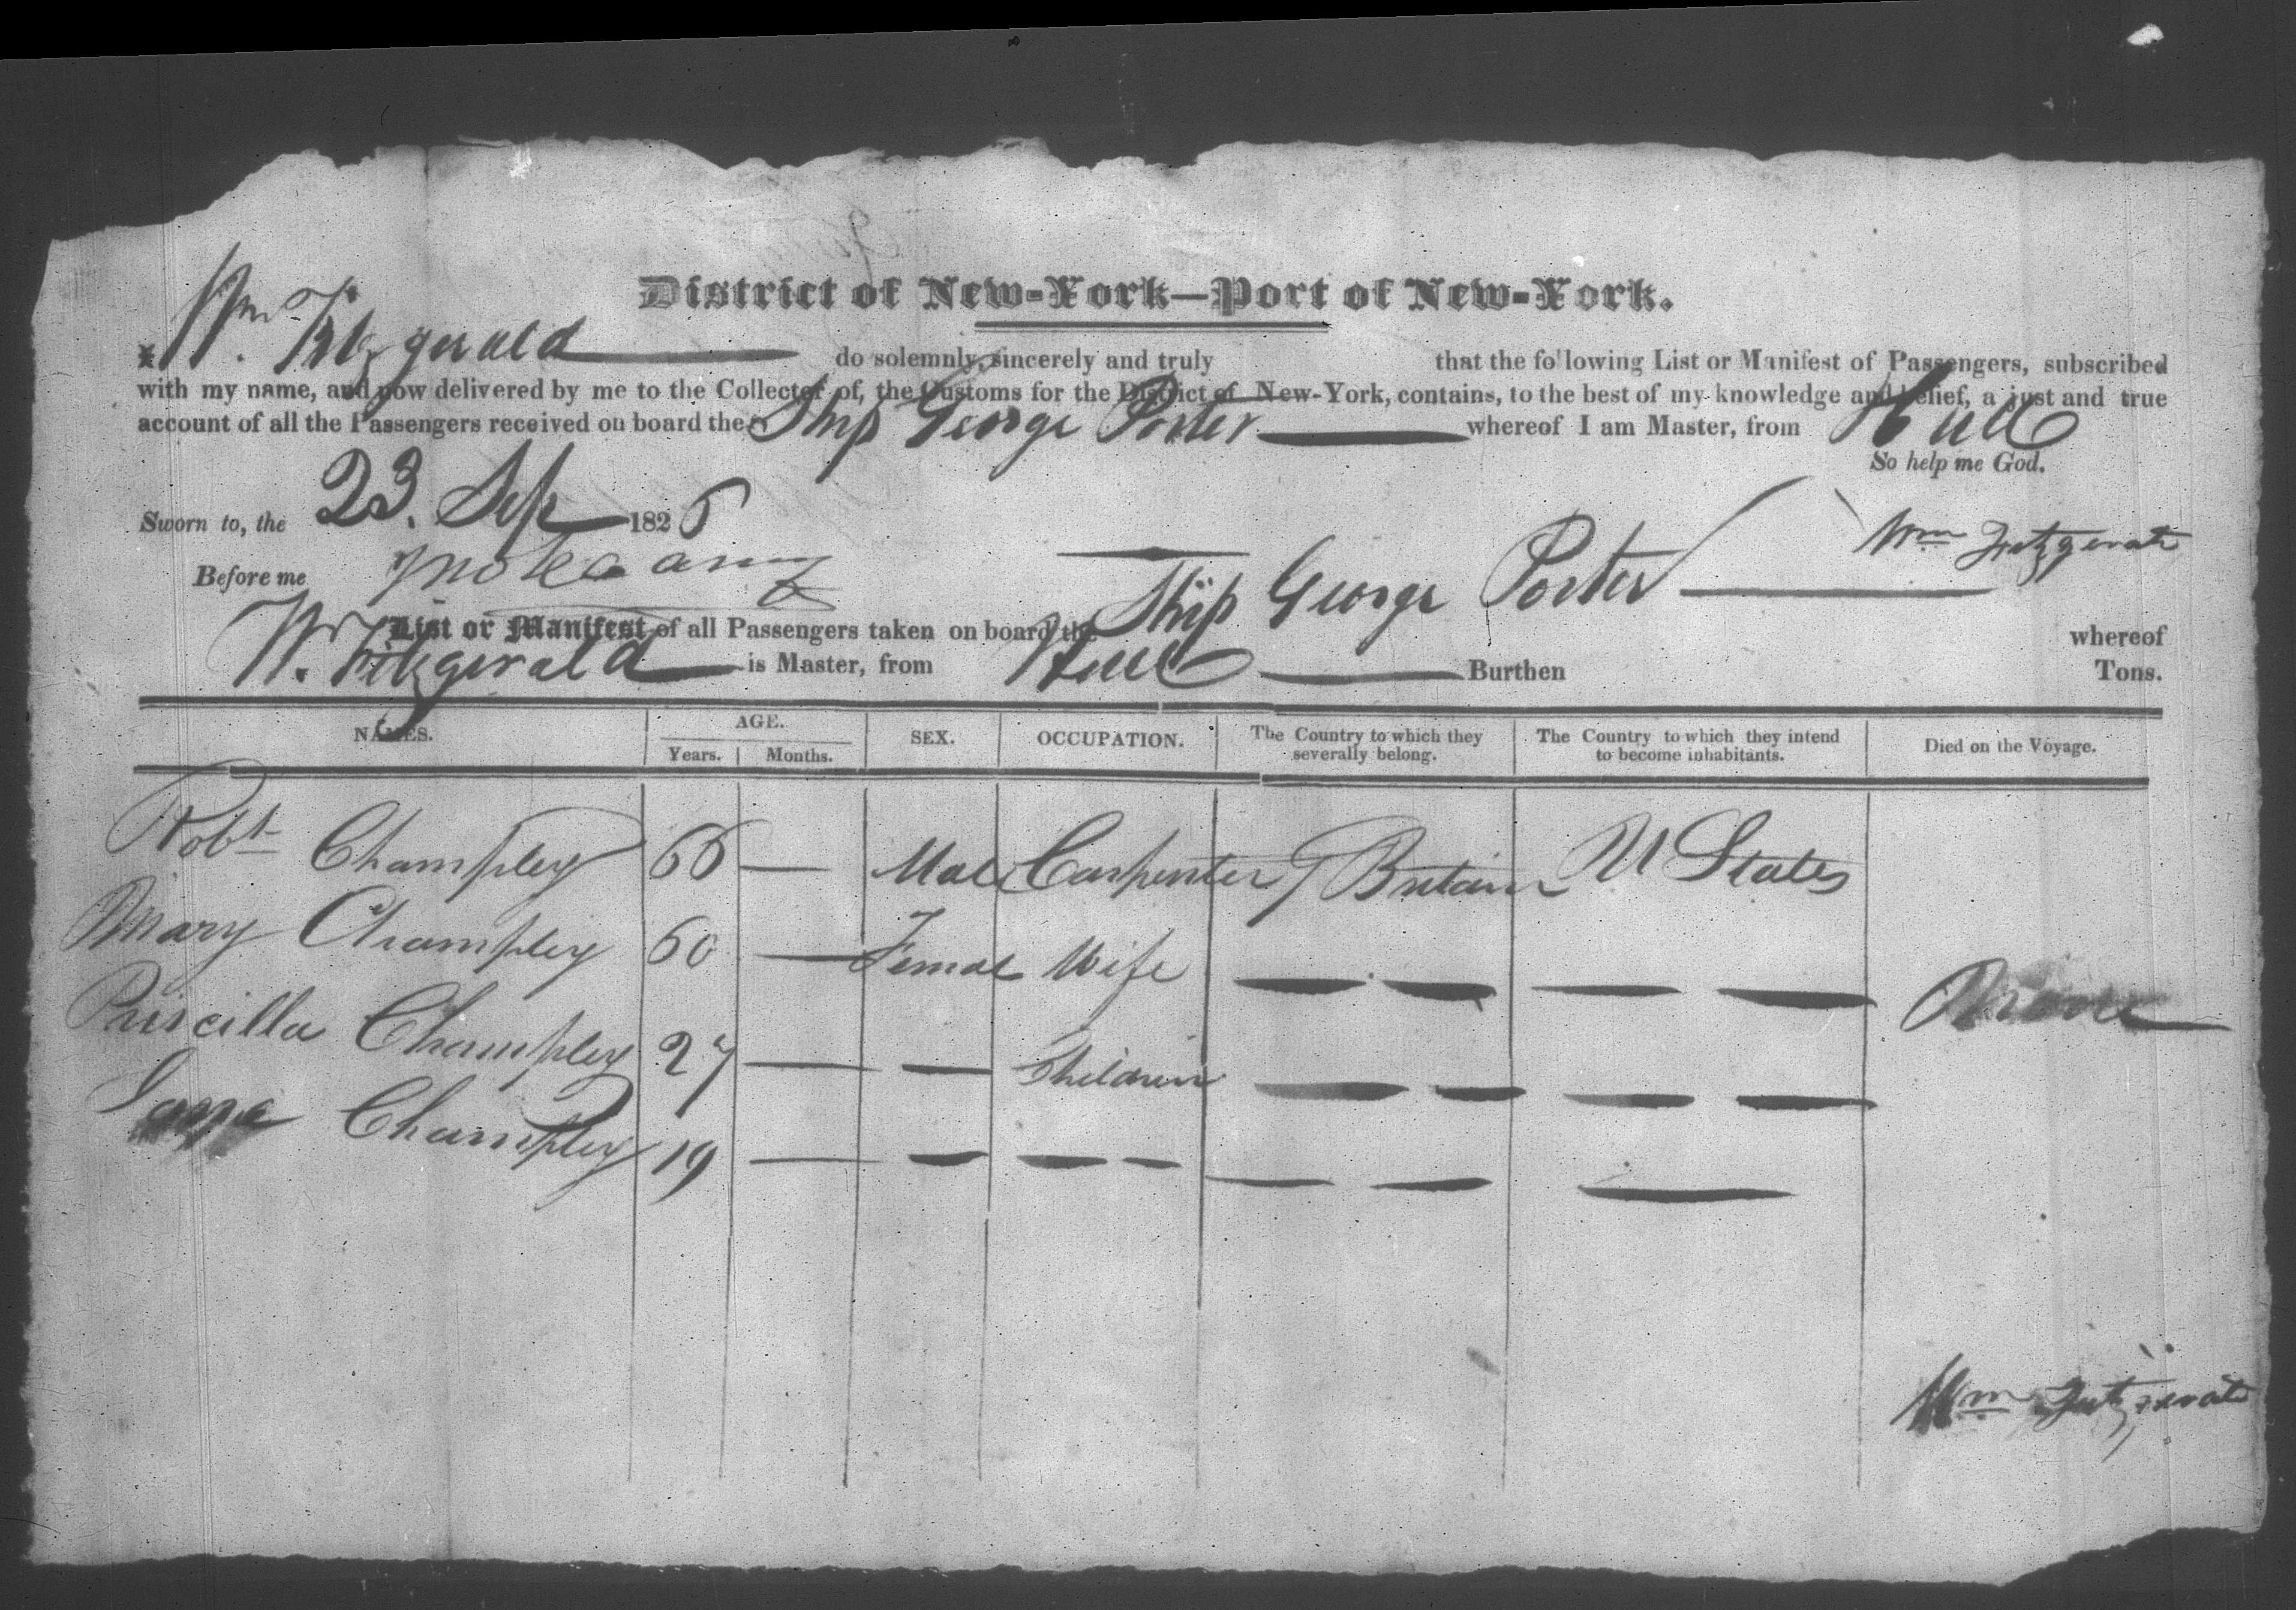 District of New-York—Port of New-York.
I Wm. Fitzgerald do solemnly, sincerely and truly that the following List or Manifest of Passengers, subscribed
with my name, and now delivered by me to the Collector of, the Customs for the District of New-York, contains, to the best of my knowledge and belief, a just and true
account of all the Passengers received on board the Ship George Porter whereof I am Master, from Hull
So help me God.
Sworn to, the 23. Sep 1826
Wm Fitzgerald
Before me
List or Manifest of all Passengers taken on board the Ship George Porter whereof
W. Fitzgerald is Master, from Hull Burthen Tons.
NAMES. AGE. SEX. OCCUPATION. The Country to which they severally belong. The Country to which they intend to become inhabitants. Died on the Voyage.
Years. Months.
Robt Champley 66 — Male Carpenter G Britain U States
Mary Champley 60 — Female Wife — — — — None
Priscilla Champley 27 — — Children — — — —
Jane Champley 19 — — — — — — —
Wm Fitzgerald